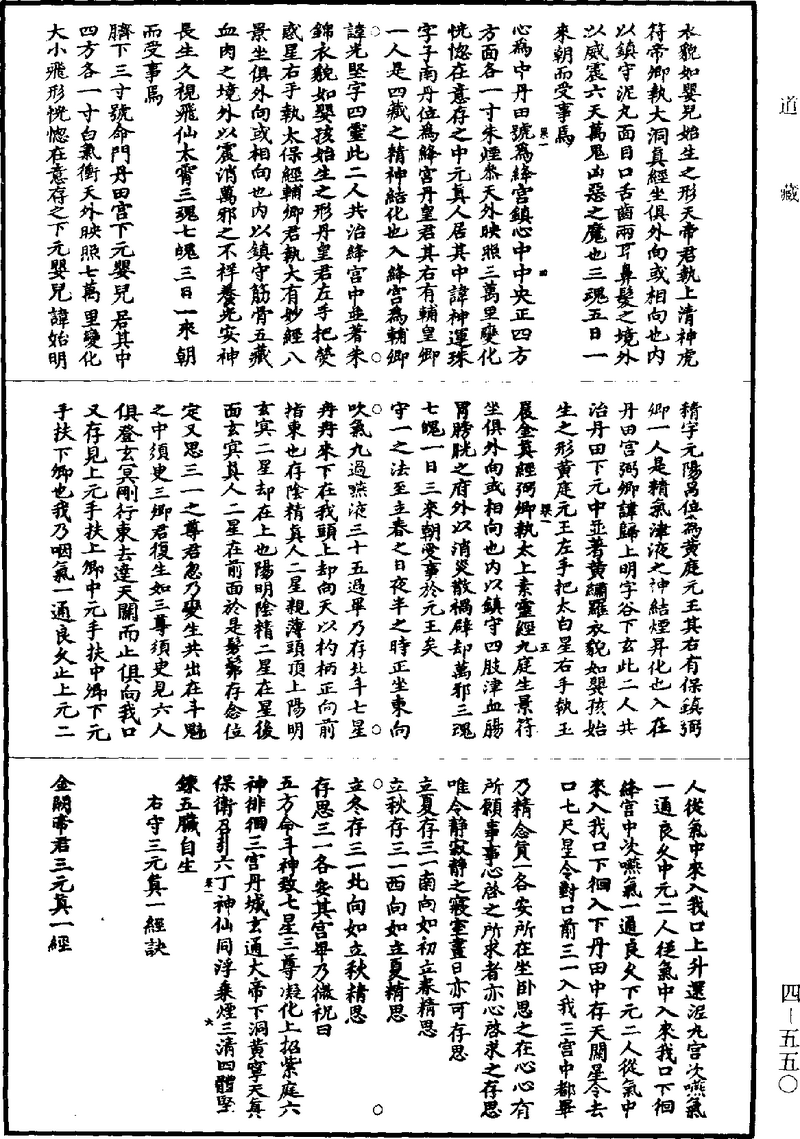 道藏
衣貌如嬰兒始生之形天帝君執上清神虎
符帝卿執大洞真經坐俱外向或相向也內
以鎮守泥丸面目口舌齒兩耳鼻髮之境外
以威震六天萬鬼凶惡之魔也三魂五日一
來朝而受事焉
心為中丹田號為絳宮鎮心中中央正四方
方面各一寸朱煙參天外映照三萬里變化
恍惚在意存之中元真人居其中諱神運珠
字子南丹位為絳宮丹皇君其右有輔皇卿
一人是四藏之精神結化也入絳宮為輔卿
諱光堅字四靈此二人共治絳宮中並著朱
錦衣貌如嬰孩始生之形丹皇君左手把熒
惑星右手執太保經輔卿君執大有妙經八
景坐俱外向或相向也內以鎮守筋骨五藏
血肉之境外以震消萬邪之不祥養光安神
長生久視飛仙太霄三魂七魄三日一來朝
而受事焉
臍下三寸號命門丹田宮下元嬰兒居其中
四方各一寸白氣衝天外映照七萬里變化
大小飛形恍惚在意存之下元嬰兒諱始明
精字元陽昌位為黃庭元王其右有保鎮弼
卿一人是精氣津液之神結煙昇化也入在
丹田宮弼卿諱歸上明字谷下玄此二人共
治丹田下元中並著黃繡羅衣貌如嬰孩始
生之形黃庭元王左手把太白星右手執玉
晨金真經弼卿執太上素靈經九庭生景符
坐俱外向或相向也內以鎮守四肢津血腸
胃膀胱之府外以消災散禍辟却萬邪三魂
七魄一日三來朝受事於元王矣
守一之法至立春之日夜半之時正坐東向
吹氣九過嚥液三十五過畢乃存北斗七星
冉冉來下在我頭上却向天以杓柄正向前
指東也存陰精真人二星親薄頭頂上陽明
玄冥二星却在上也陽明陰精二星在星後
面玄冥真人二星在前面於是髣髴存念位
定又思三一之尊君忽乃變生共出在斗魁
之中須臾三卿君復生如三尊須臾見六人
俱登玄冥剛行東去達天關而止俱向我口
又存見上元手扶上卿中元手扶中卿下元
手扶下卿也我乃咽氣一通良久止上元二
人從氣中來入我口上升還泥丸宮次嚥氣
一通良久中元二人從氣中入來我口下徊
絳宮中次嚥氣一通良久下元二人從氣中
來入我口下徊入下丹田中存天關星令去
口七尺星令對口前三一入我三宮中都畢
乃精念真一各安所在坐臥思之在心心有
所願事事心啓之所求者亦心啓求之存思
唯令靜寂靜之寢室晝日亦可存思
立夏存三一南向如初立春精思
立秋存三一西向如立夏精思
立冬存三一北向如立秋精思
存思三一各安其宮畢乃微祝曰
五方命斗神致七星三尊凝化上招紫庭六
神徘徊三宮丹城玄通大帝下洞黃寧天真
保衛召引六丁神仙同浮乘煙三清四體堅
鍊五臟自生
右守三元真一經訣
金闕帝君三元真一經
四－五五〇